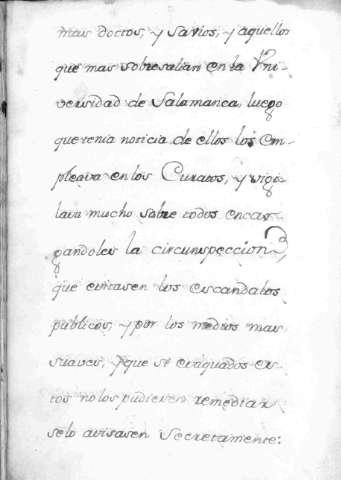 mas doctos, y savios, y aquellos
que mas sobresalian en la Vni-
versidad de Salamanca, luego
que tenia noticia de ellos los em-
pleava en los Curatos, y vigi-
lava mucho sobre todos encar-
gandoles la circunspeccion,
que evitasen los escandalos
publicos, y por los medios mas
suaves, y que si evaquados es-
tos no los pudiesen remediar
selo avisasen secretamente: